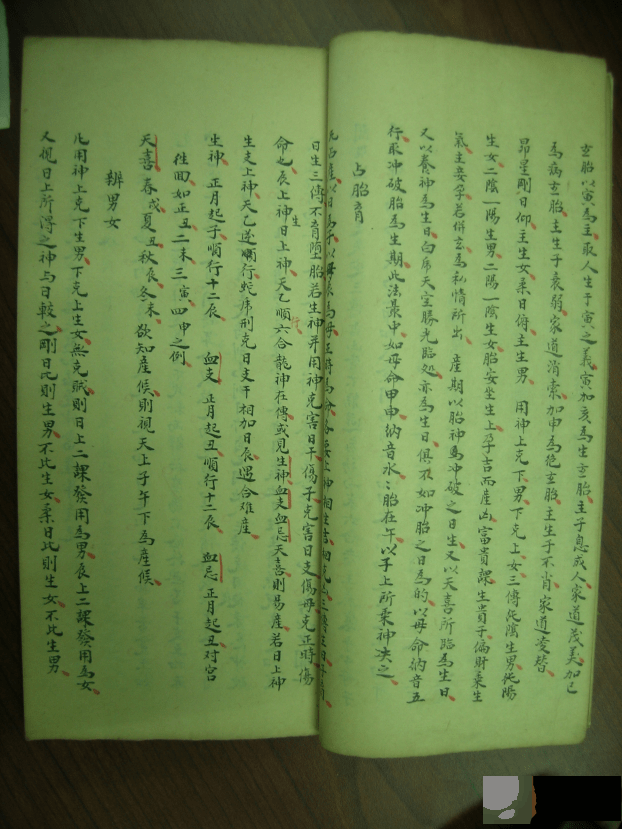 玄胎以寅爲主取人生于寅之義寅加亥爲生玄胎主子息成人家道茂美加巳
爲病玄胎主生子衰弱家道消索加申爲絶玄胎主生子不肖家道凌替
昴星剛日仰主生女柔日俯主生男 用神上克下男下克上女三傳純陰生男純陽
生女二陰一陽生男二陽一陰生女胎安坐生上孕吉而產凶富貴課生貴子偏財乘生
氣主妾孕若併玄爲私情所出 產期以胎神爲冲破之日生又以天喜所臨爲生日
又以養神爲生日白虎天空勝光臨処亦爲生日俱不如冲胎之日爲的以母命納音五
行取冲破胎爲生期此法最中如母命甲申納音水〻胎在午以子上所乘神决之
占胎育
日生三傳不育墮胎若生神并用神克害日干傷子克害日支傷母克正時傷
命也辰上神生日上神天乙順行六合龍神在傳或見生神血支血忌天喜則易產若日上神
生支上神天乙逆順行蛇虎刑克日支干相加日辰遇合难產
生神 正月起子順行十二辰 血支 正月起丑順行十二辰 血忌 正月起丑对宫
徃回如正丑二未三寅四申之例
天喜春戌夏丑秋辰冬未 欲知產候則視天上子午下爲產候
辨男女
凡用神上克下生男下克上生女無克賊則日上二課發用爲男辰上二課發用爲女
又視日上所得之神与日較之剛日比則生男不比生女柔日比則生女不比生男